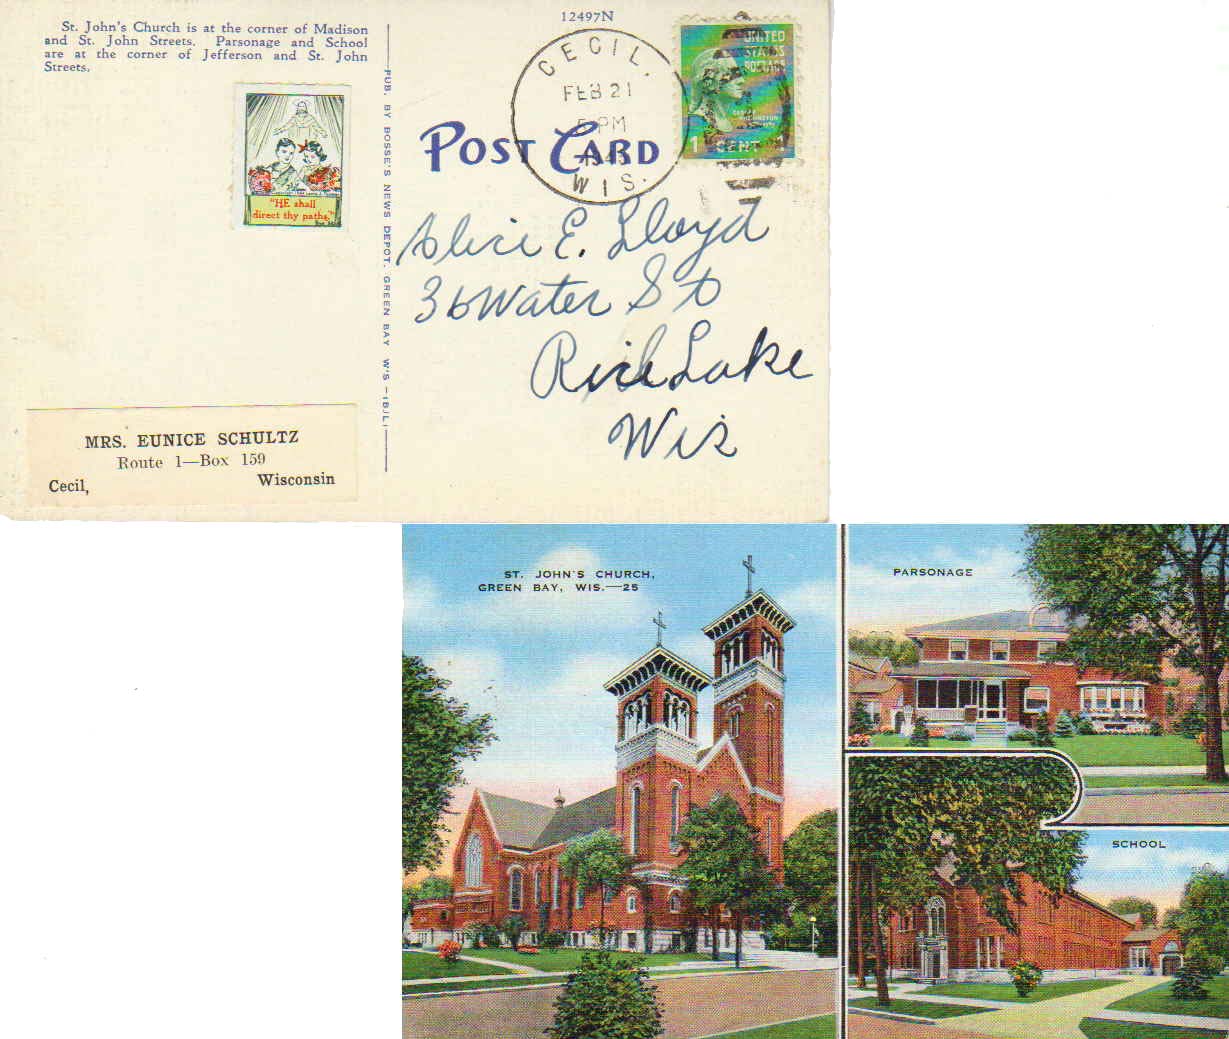 St. John's Church is at the corner of Madison
and St. John Streets. Parsonage and School
are at the corner of Jefferson and St. John
Streets.
12497N
CECIL.
FEB 21
5 PM
WIS.
UNITED
STATES
POSTAGE
1 CENT 1
POST CARD
"HE shall
direct thy paths."
PUB. BY BOSSE'S NEWS DEPOT, GREEN BAY WIS.—(BJL)
Alice E. Lloyd
36 Water St
Rice Lake
Wis
MRS. EUNICE SCHULTZ
Route 1—Box 159
Cecil, Wisconsin
ST. JOHN'S CHURCH,
GREEN BAY, WIS.—25
PARSONAGE
SCHOOL